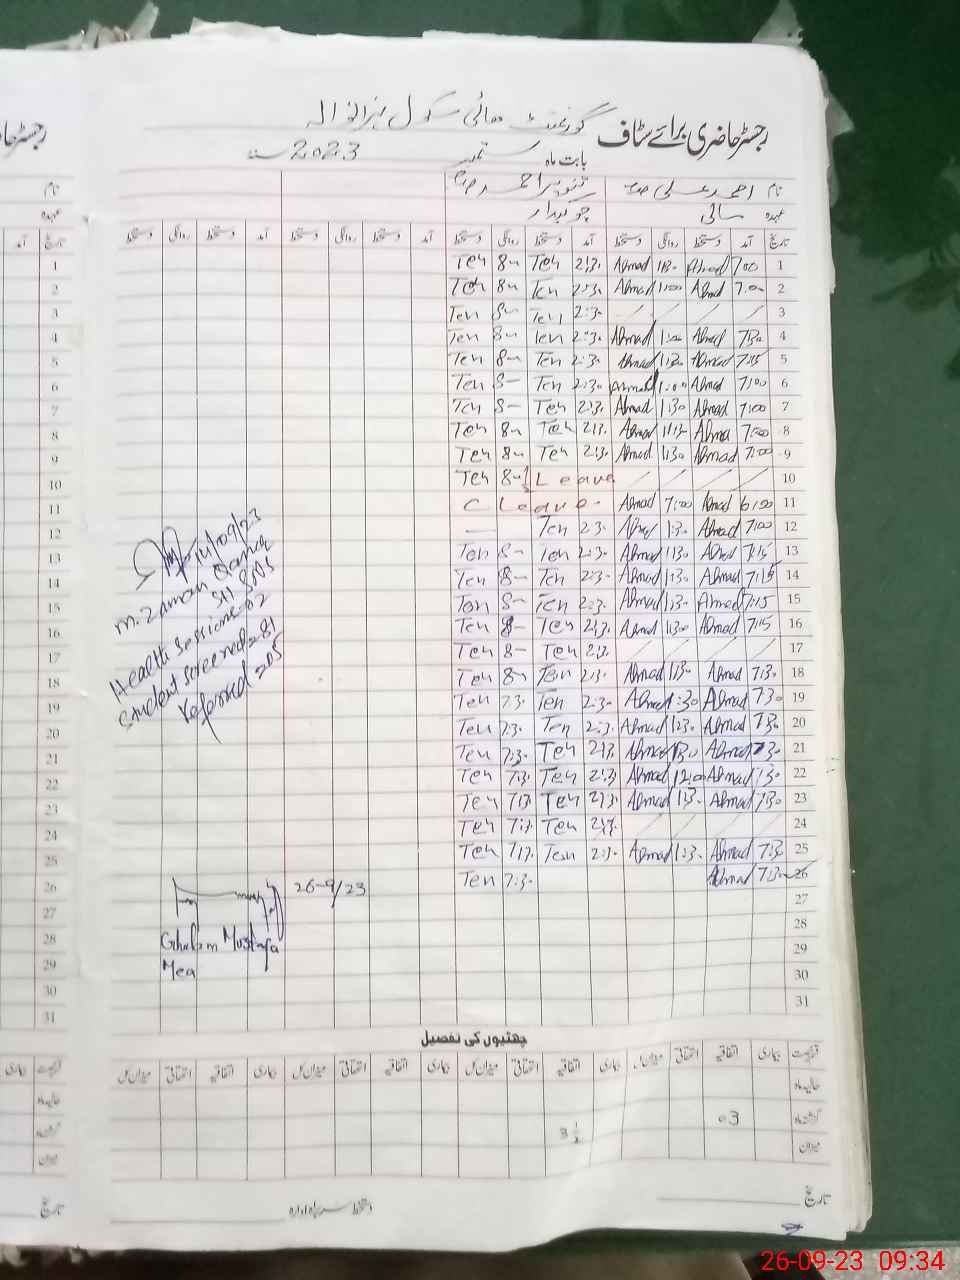 رجسٹر حاضری برائے سٹاف گورنمنٹ ھائی سکول
بابت ماہ ستمبر 2023 سنہ
نام احمد علی تنویر احمد
عہدہ مالی چوکیدار
تاریخ آمد دستخط روانگی دستخط آمد دستخط روانگی دستخط آمد دستخط روانگی دستخط آمد دستخط روانگی دستخط
1 7:00 Ahmad 1:30 Ahmad 2:30 Ten 8- Ten
2 7:00 Ahmad 1:00 Ahmad 2:30 Ten 8- Ten
3 2:30 Ten 8- Ten
4 7:30 Ahmad 1:30 Ahmad 2:30 Ten 8- Ten
5 7:15 Ahmad 1:30 Ahmad 2:30 Ten 8- Ten
6 7:00 Ahmad 1:00 Ahmad 2:30 Ten 8- Ten
7 7:00 Ahmad 1:30 Ahmad 2:30 Ten 8- Ten
8 7:00 Ahmad 1:13 Ahmad 2:30 Ten 8- Ten
9 7:00 Ahmad 1:30 Ahmad 2:30 Ten 8- Ten
10 Leave 8- Ten
11 6:00 Ahmad 7:00 Ahmad C Leave
12 7:00 Ahmad 1:30 Ahmad 2:30 Ten —
13 7:15 Ahmad 1:30 Ahmad 2:30 Ten 8- Ten
14 7:15 Ahmad 1:30 Ahmad 2:30 Ten 8- Ten
15 7:15 Ahmad 1:30 Ahmad 2:30 Ten 8- Ten
16 7:15 Ahmad 1:30 Ahmad 2:30 Ten 8- Ten
17 2:30 Ten 8- Ten
18 7:30 Ahmad 1:30 Ahmad 2:30 Ten 8- Ten
19 7:30 Ahmad 1:30 Ahmad 2:30 Ten 7:30 Ten
20 7:30 Ahmad 1:30 Ahmad 2:30 Ten 7:30 Ten
21 7:30 Ahmad 1:30 Ahmad 2:30 Ten 7:30 Ten
22 7:30 Ahmad 12:0 Ahmad 2:30 Ten 7:30 Ten
23 7:30 Ahmad 1:30 Ahmad 2:30 Ten 7:30 Ten
24 2:30 Ten 7:30 Ten
25 7:30 Ahmad 1:30 Ahmad 2:30 Ten 7:30 Ten
26 7:30 Ahmad 7:30 Ten
27
28
29
30
31
14/09/23
M. Zaman
SH &NS
Health Sessions=02
Student screened=281
referred=205
26-9/23
Ghulam Mustafa
Mea
چھٹیوں کی تفصیل
بیماری اتفاقیہ استحقاقی میزان کل بیماری اتفاقیہ استحقاقی میزان کل بیماری اتفاقیہ استحقاقی میزان کل بیماری اتفاقیہ استحقاقی میزان کل
حالیہ ماہ
گزشتہ ماہ 03 3½
میزان
تاریخ دستخط سربراہ ادارہ
26-09-23 09:34